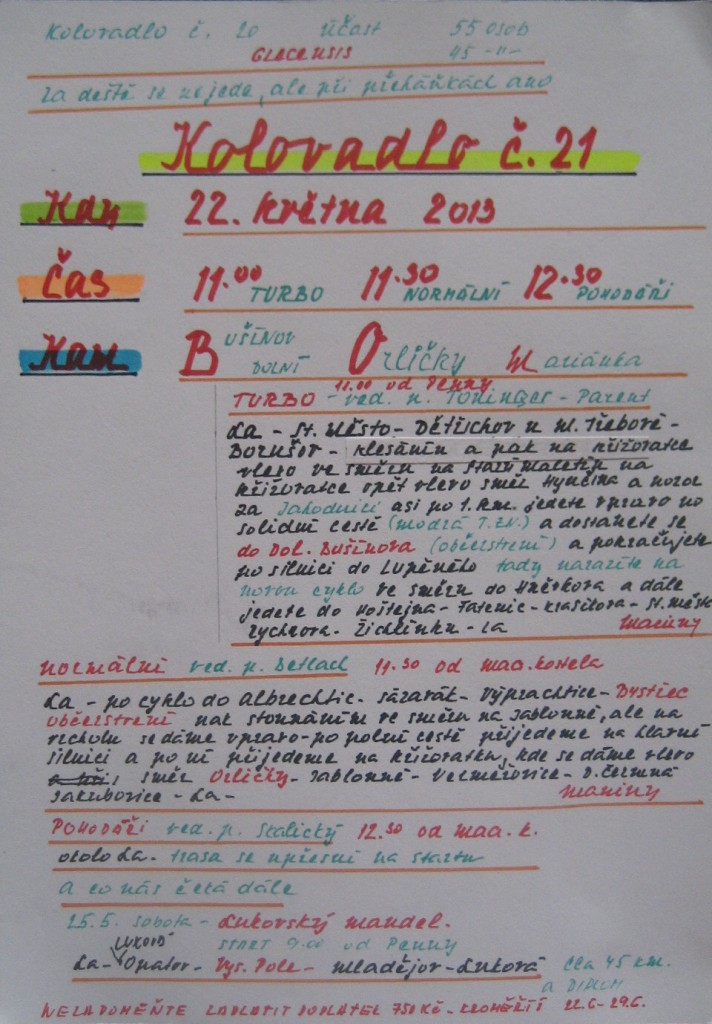 Kolovadlo č. 20 Účast 55 osob
GLACENSIS 45 -11-
Za deště se nejede, ale při přeháňkách ano
Kolovadlo č. 21
Kdy 22. Května 2013
Čas 11.00 TURBO 11.30 NORMÁLNÍ 12.30 POHODÁŘI
Kam BUŠÍNOV DOLNÍ Orličky Mariánka
11.00 od Penny
TURBO - ved. p. - Parent
La - St. Město - Dětřichov u M. Třebové -
Borušov - klesáním a pak na křižovatce
vlevo ve směru na Starý Maletín na
křižovatce opět vlevo směr Hynčina a pozor
za Jahodnicí asi po 1. km. jedete vpravo po
solidní cestě (modrá T. zn.) a dostanete se
do Dol. Bušínova (občerstvení) a pokračujete
po silnici do Lupěného tady narazíte na
novou cyklo ve směru do Hněvkova a dále
jedete do Hoštejna - Tatenic - Krasíkova - St. Města
Rychnova - Žichlínku - La Maciny
NORMÁLNÍ ved. p. Betlach 11.30 od maa. kostela
La - po cyklo do Albrechtic - Sázavák - Výprachtice - Bystřec
občerstvení pak stoupáním ve směru na Jablonné, ale na
vrcholu se dáme vpravo - po polní cestě přijedeme na hlavní
silnici a po ní přijedeme na křižovatku, kde se dáme vlevo
směr Orličky - Jablonné - Verměřovice - D. Čermná
Jakubovice - La - Maniny
POHODÁŘI ved. p. Skalický 12.30 od maa. k.
okolo La. trasa se upřesní na startu
a co nás čeká dále
25.5. sobota - Lukovský mandel.
LUKOVÁ START 9.00 od Penny
La - Opatov - Vys. Pole - Mladějov - Luková cca 45 km.
a DIPLOM
NEZAPOMEŇTE ZAPLATIT DOPLATEK 750 Kč - KROMĚŘÍŽ 22.6 - 29.6.